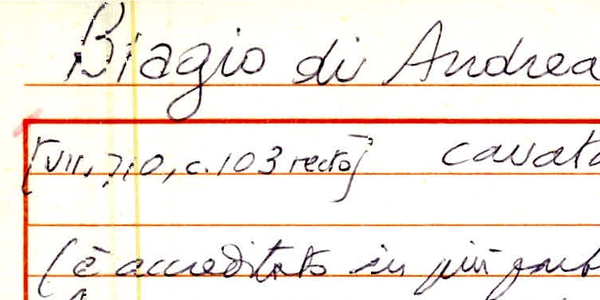 Biagio di Andrea
[VII, 7, 10, c. 103 recto] cavato
(è accreditato in più